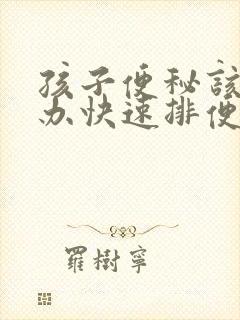 孩子便秘該
办快速排便
羅樹寧